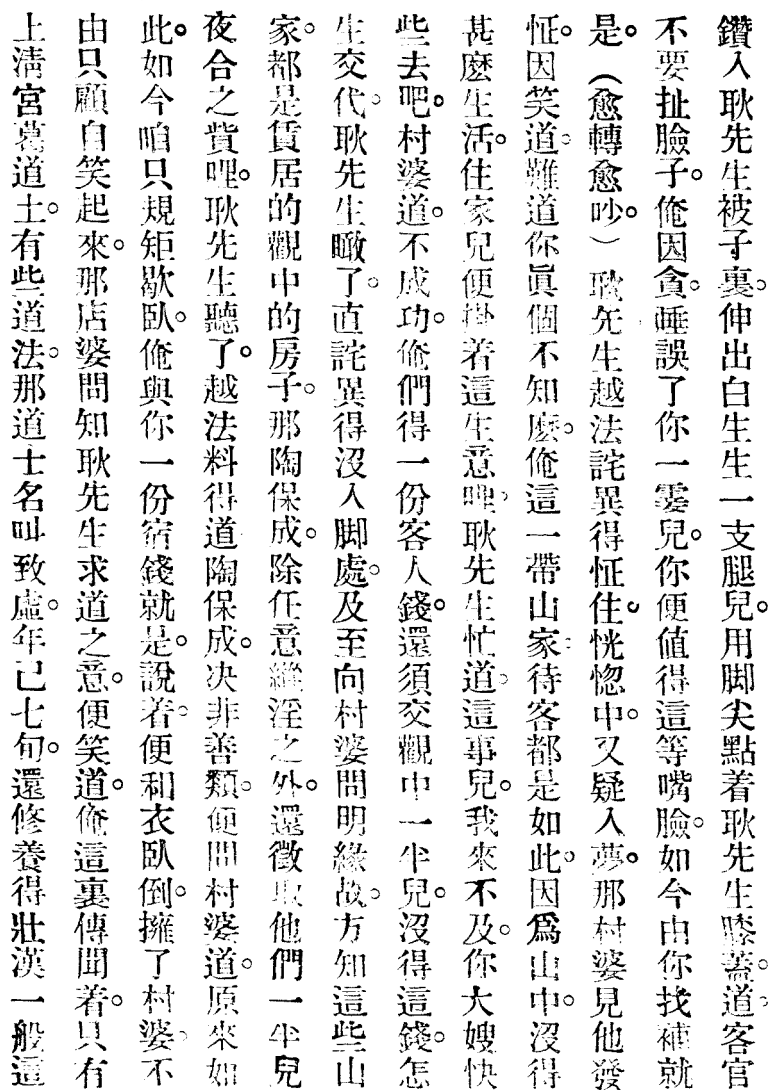 鑽入耿先生被子裏。伸出白生生一支腿兒。用脚尖點着耿先生膝蓋。道。客官
不要扯臉子。俺因貪睡誤了你一霎兒。你便值得這等嘴臉。如今由你找補就
是。（愈轉愈吵）耿先生越法詫異得怔住。恍惚中。又疑入夢。那村婆見他發
怔。因笑道。難道你眞個不知麽。俺這一帶山家。待客都是如此。因爲山中。沒得
甚麽生活。住家兒便掛着這生意哩。耿先生忙道。這事兒。我來不及。你大嫂快
些去吧。村婆道。不成功。俺們得一份客人錢。還須交觀中一半兒。沒得這錢。怎
生交代。耿先生瞰了。直詫異得沒入脚處。及至向村婆問明緣故。方知這些山
家。都是賃居的觀中的房子。那陶保成。除任意縱淫之外。還徵取他們一半兒
夜合之費哩。耿先生聽了。越法料得道陶保成。决非善類。便問村婆道。原來如
此。如今咱只規矩歇臥。俺與你一份宿錢就是。說着。便和衣臥倒。擁了村婆。不
由只顧自笑起來。那店婆問知耿先生求道之意。便笑道。俺這裏傳聞着。只有
上淸宮葛道士。有些道法。那道士名叫致虛。年已七旬。還修養得壯漢一般。這